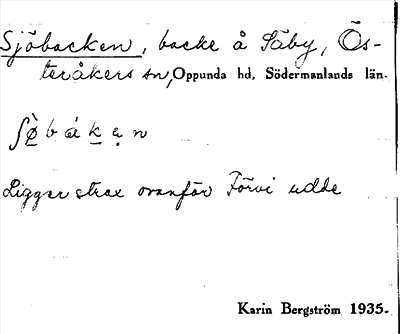 Sjöbacken, backe å Säby, Ös-
teråkers sn, Oppunda hd, Södermanlands län.
ʃø̀bákən
Ligger strax ovanför Förvi udde
Karin Bergström 1935.